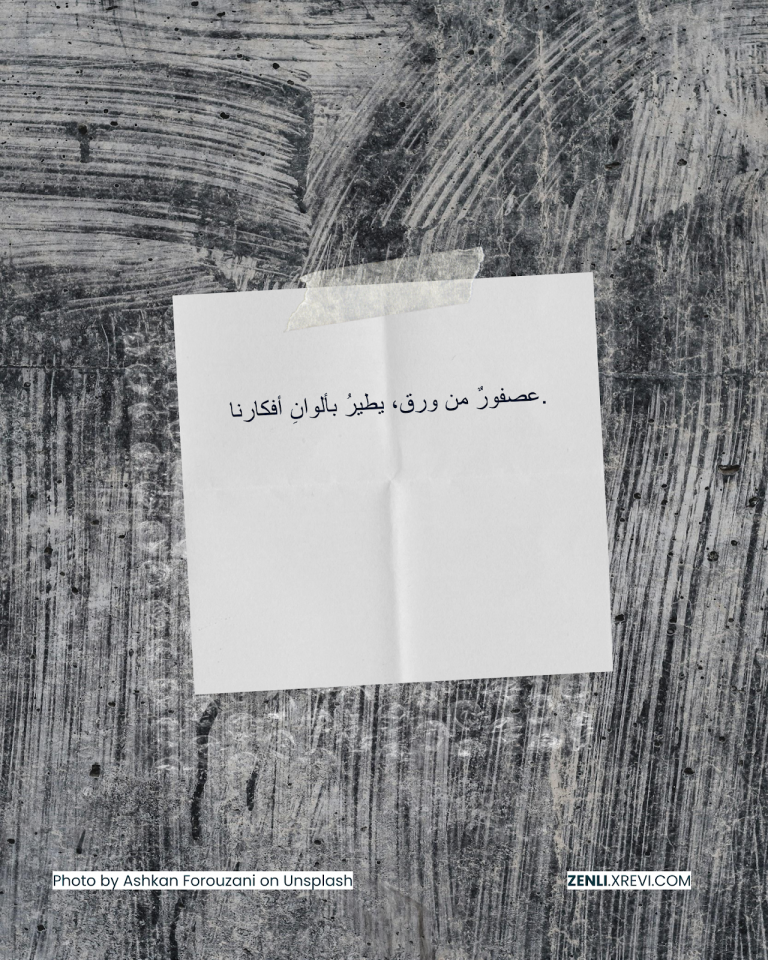 عصفورٌ من ورق، يطيرُ بألوانِ أفكارنا.
Photo by Ashkan Forouzani on Unsplash
ZENLI.XREVI.COM